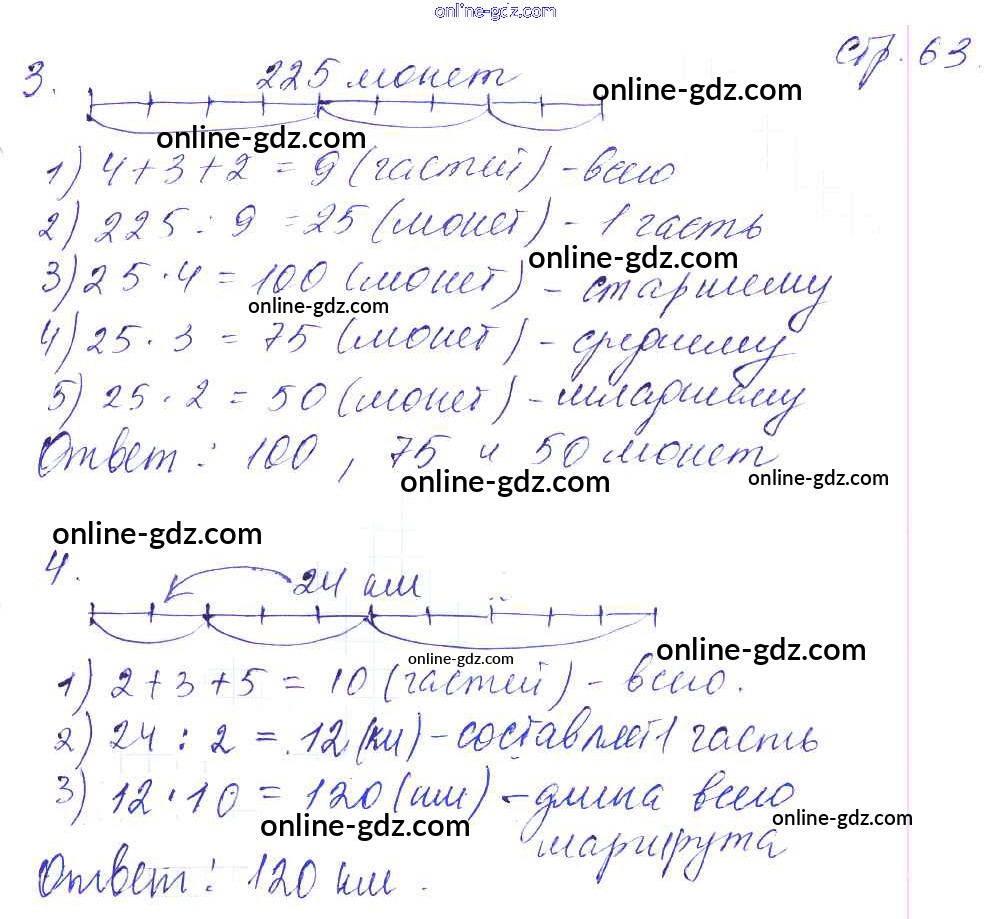 online-gdz.com
стр. 63.
3. 225 монет
online-gdz.com
online-gdz.com
1) 4+3+2 = 9 (частей) - всего
2) 225 : 9 = 25 (монет) - 1 часть
online-gdz.com
3) 25 · 4 = 100 (монет) - старшему
online-gdz.com
4) 25 · 3 = 75 (монет) - среднему
5) 25 · 2 = 50 (монет) - младшему
Ответ: 100, 75 и 50 монет
online-gdz.com
online-gdz.com
online-gdz.com
4. 24 км
online-gdz.com
online-gdz.com
1) 2+3+5 = 10 (частей) - всего.
2) 24 : 2 = 12 (км) - составляет 1 часть
3) 12 · 10 = 120 (км) - длина всего
online-gdz.com
online-gdz.com
маршрута
Ответ: 120 км.